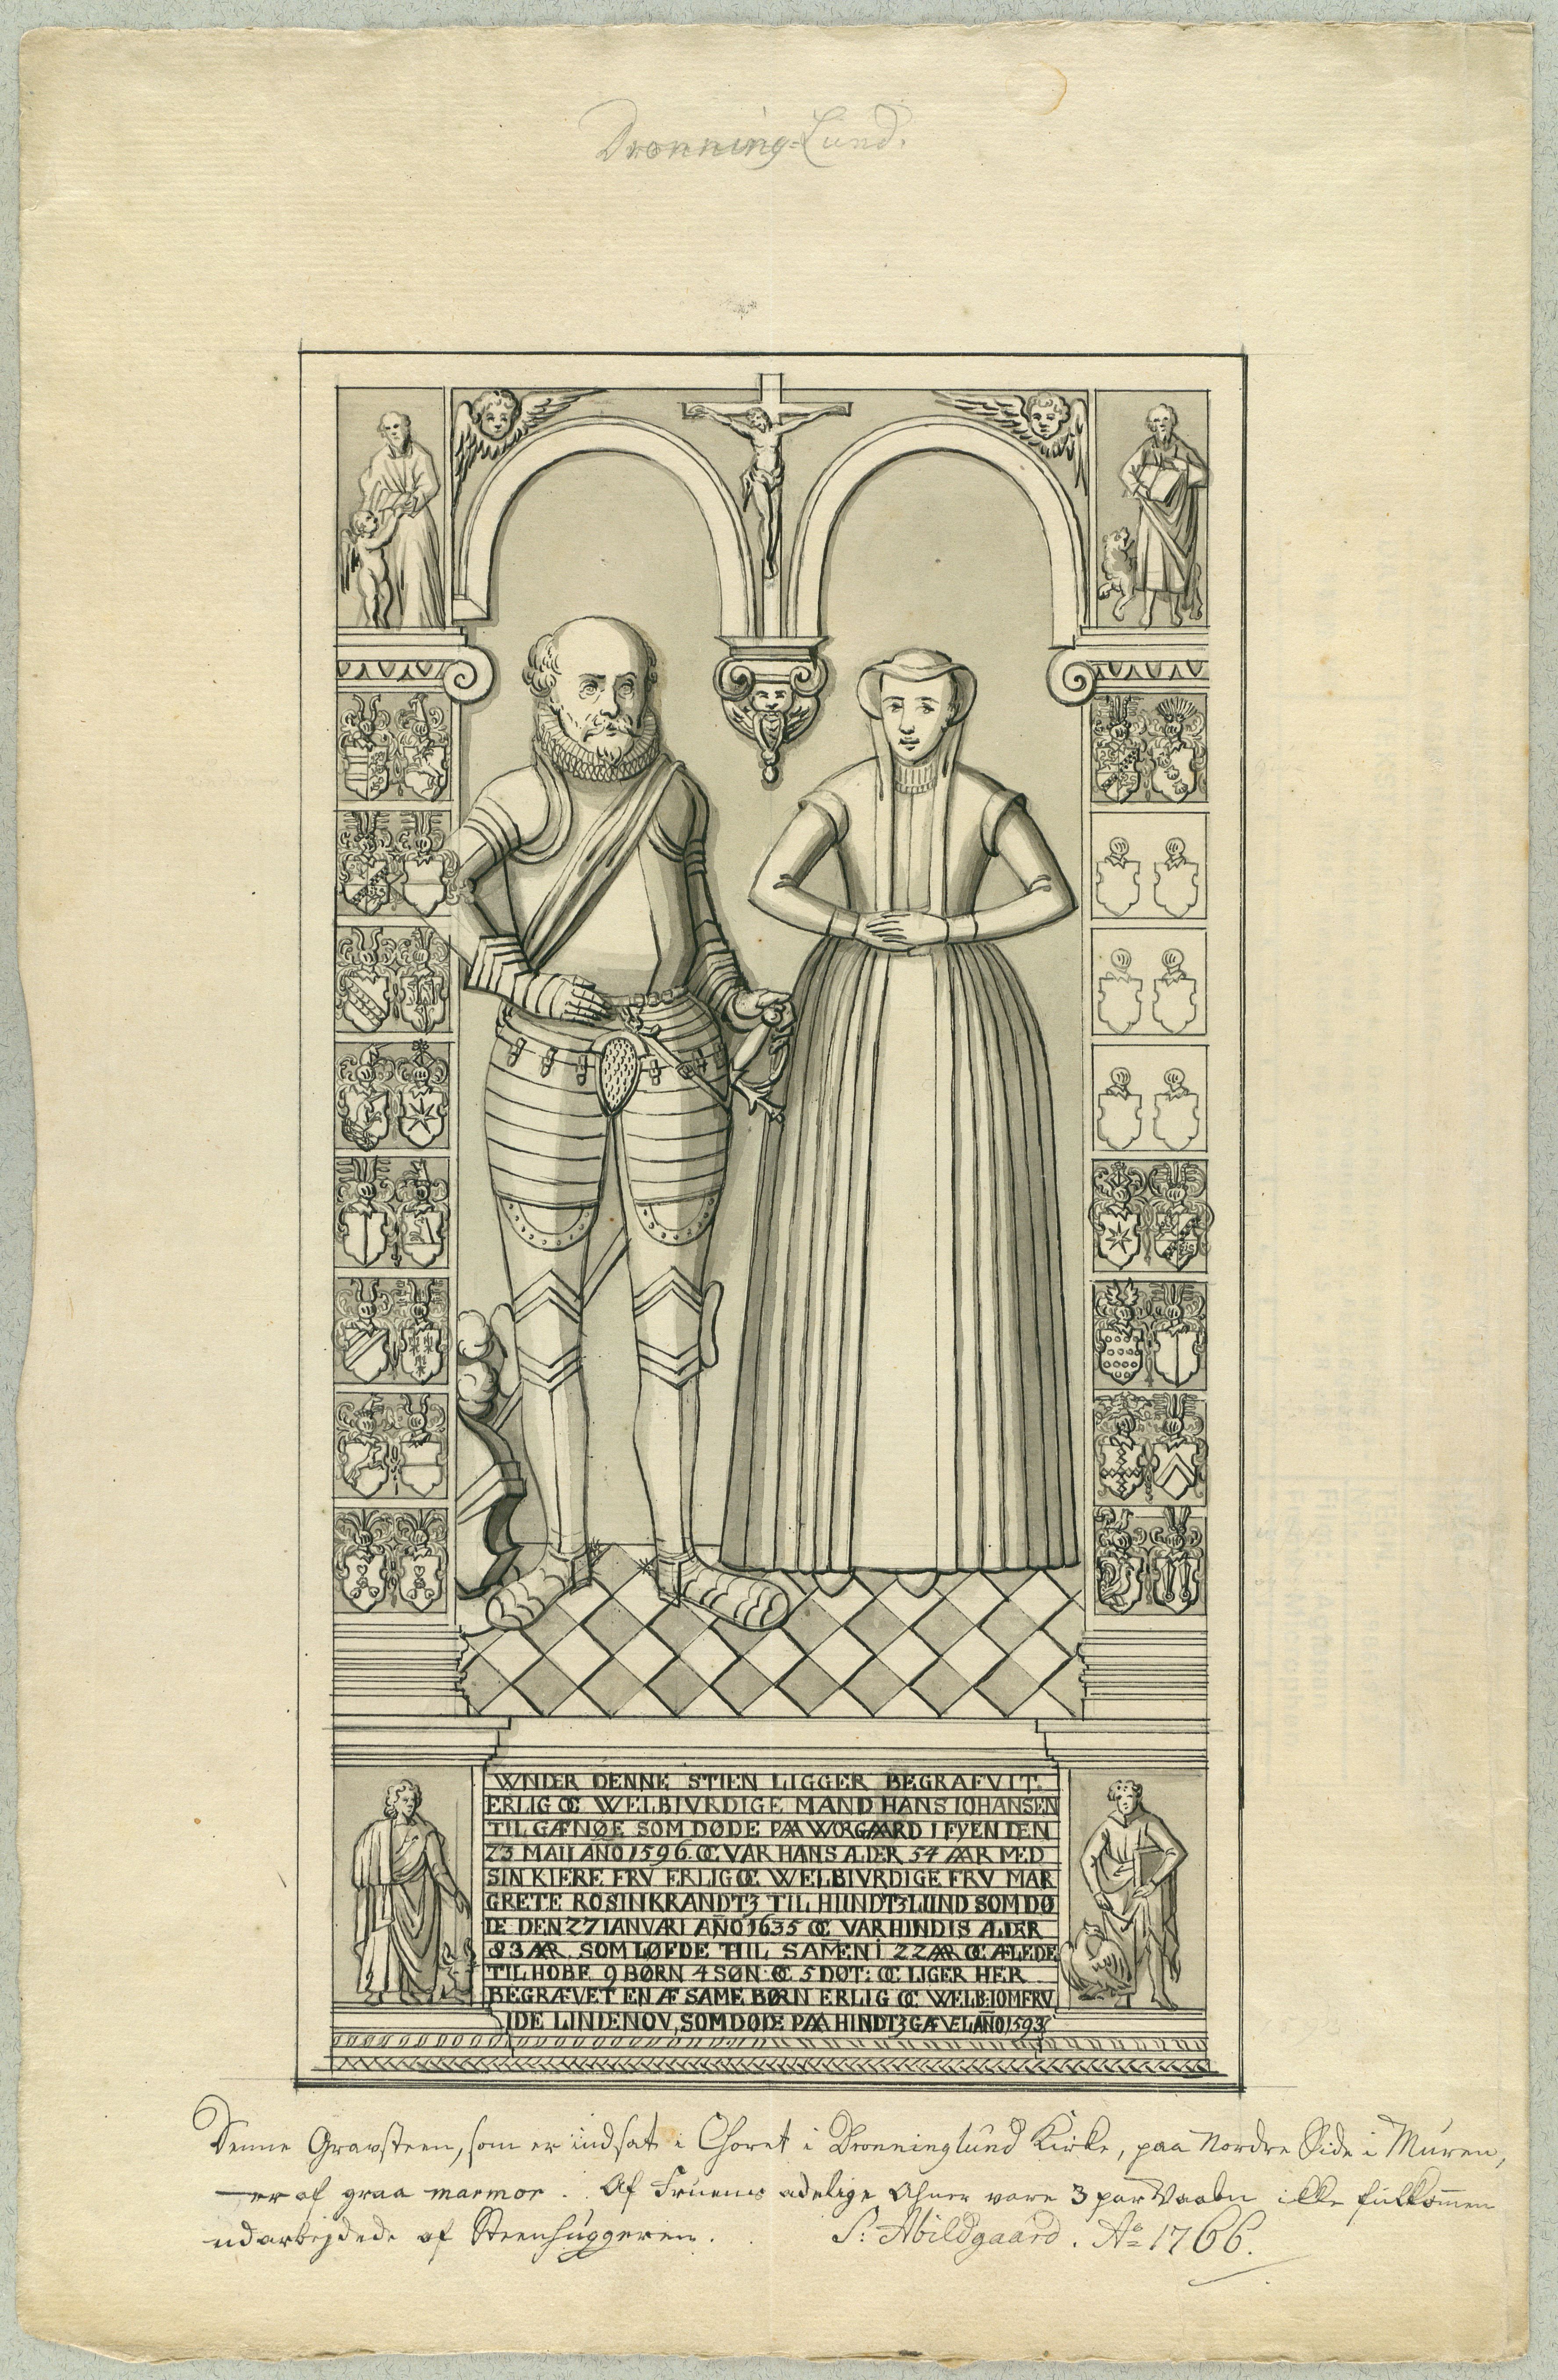 Dronning-Lund.
WNDER DENNE STIEN LIGGER BEGRAFVIT.
ERLIG OC WELBIVRDIGE MAND HANS IOHANSEN
TIL GÆNØE SOM DØDE PAA WORGAARD I FYEN DEN
23 MAII AÑO 1596. OC VAR HANS ALDER 54 AAR MED
SIN KIERE FRV ERLIG OC WELBIVRDIGE FRV MAR
GRETE ROSINKRANDTZ TIL HUNDTZLUND SOM DØ
DE DEN 27 IANVARI AÑO 1635 OC VAR HINDIS ALDER
83 AAR. SOM LØFDE THIL SAMEN I 22 AAR OC ÆLEDE
TILHOBE 9 BØRN 4 SØN: OC 5 DØT: OC LIGER HER
BEGRÆVET EN Æ SAME BØRN ERLIG OC WELB: IOMFRV
IDE LINDENOV, SOM DØDE PAA HINDTZGÆVEL AÑO 1593
Denne Gravsteen, som er indsat i Choret i Dronninglund Kirke, paa Nordre Side i Muren,
er af graa marmor. Af Fruens adelige Ahner vare 3 par Vaaben ikke fulkom̄en
udarbejdede af Steenhuggeren. S: Abildgaard. Aº 1766.